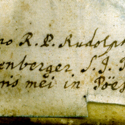 no R. P. Rudolph
enberger S. J.
ris mei in Poës